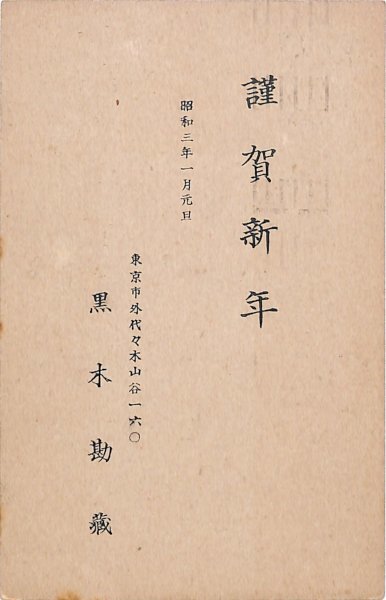 謹賀新年
昭和三年一月元旦
東京市外代々木山谷一六〇
黒木勘蔵